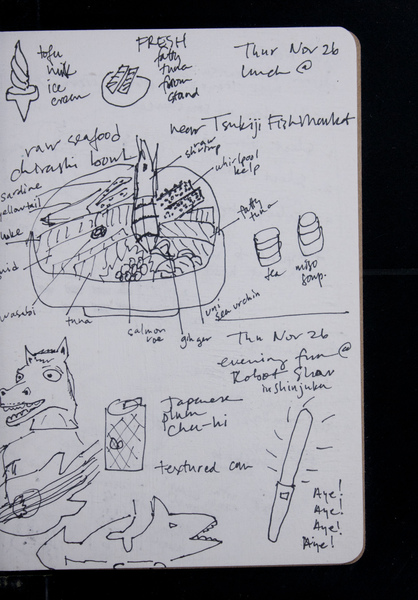 tofu
milk
ice
cream
FRESH
fatty
tuna
from
stand
Thur Nov 26
lunch @
near Tsukiji Fish Market
raw seafood
chirashi bowl
raw
shrimp
whirlpool
kelp
sardine
yellowtail
fatty
tuna
wasabi
tuna
salmon
roe
ginger
uni
sea urchin
tea
miso
soup.
Thu Nov 26
evening fun @
Robot Show
in shinjuku
Japanese
plum
Chu-hi
textured can
Aye!
Aye!
Aye!
Aye!